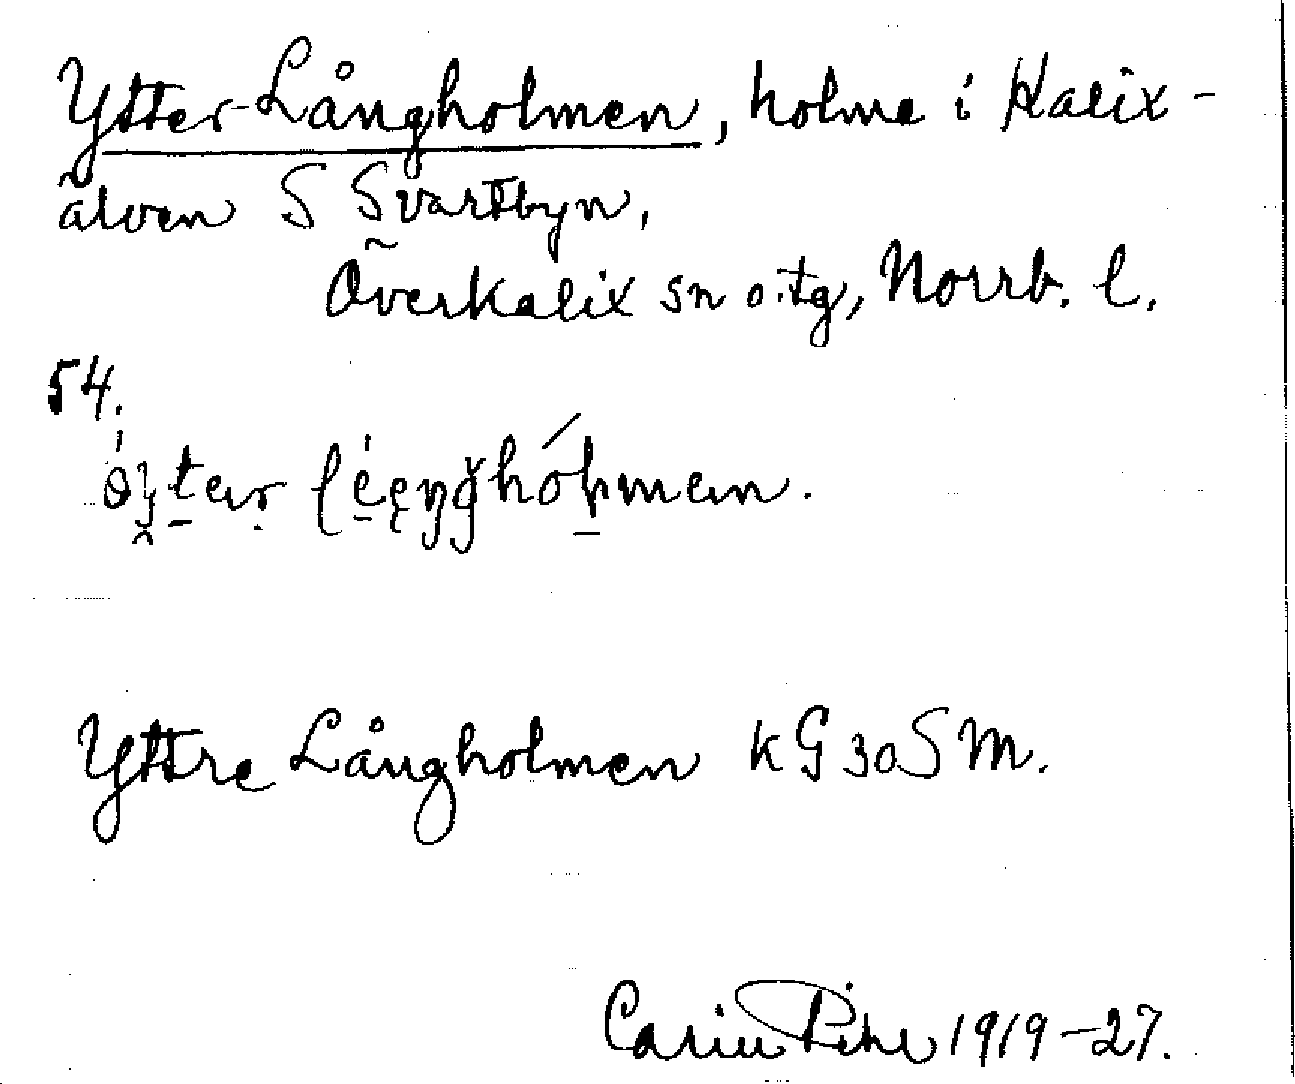 Ytter-Långholmen, holme i Kalix-
älven S Svartbyn,
Överkalix sn o. tg, Norrb. l.
54.
Yttre Långholmen KG 30 SM.
Carin Pihl 1919-27.